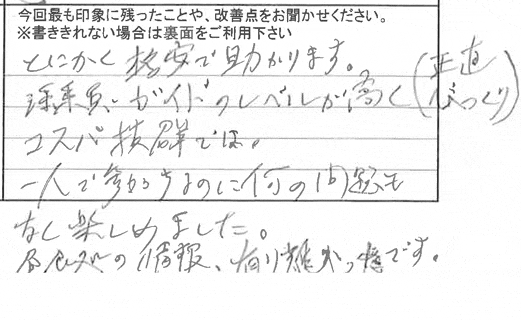 今回最も印象に残ったことや、改善点をお聞かせください。
※書ききれない場合は裏面をご利用下さい
とにかく格安で助かります。
添乗員、ガイドのレベルが高く(正直びっくり)
コスパ抜群では。
一人で参加するのに何の問題も
なく楽しめました。
の情報、有り難かったです。